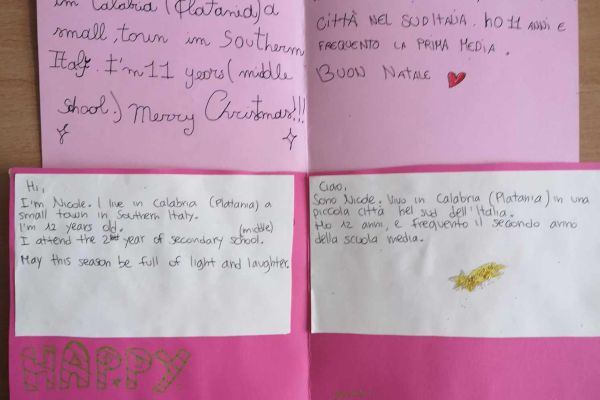 in Calabria (Platania) a
small town in Southern
Italy. I'm 11 years (middle
school.) Merry Christmas!!!
CITTÀ NEL SUD ITALIA. HO 11 ANNI E
FREQUENTO LA PRIMA MEDIA.
BUON NATALE
Hi,
I'm Nicole. I live in Calabria (Platania) a
small town in Southern Italy.
I'm 12 years old.
(middle)
I attend the 2nd year of secondary school.
May this season be full of light and laughter.
Ciao,
Sono Nicole. Vivo in Calabria (Platania) in una
piccola città nel sud dell'Italia.
Ho 12 anni, e frequento il secondo anno
della scuola media.
HAPPY